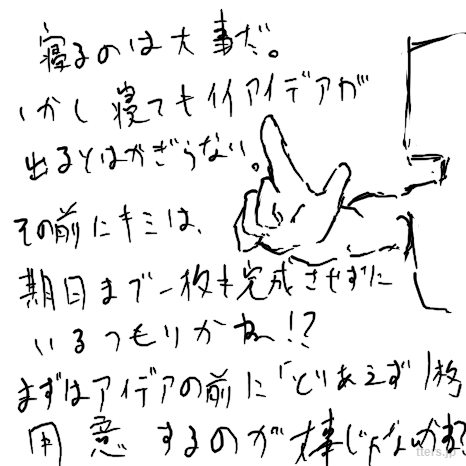 寝るのは大事だ。
しかし寝てもイイアイデアが
出るとはかぎらない。
その前にキミは、
期日まで一枚も完成させずに
いるつもりかね!?
まずはアイデアの前に「とりあえず1枚
用意するのが大事じゃないかね?
tters.jp